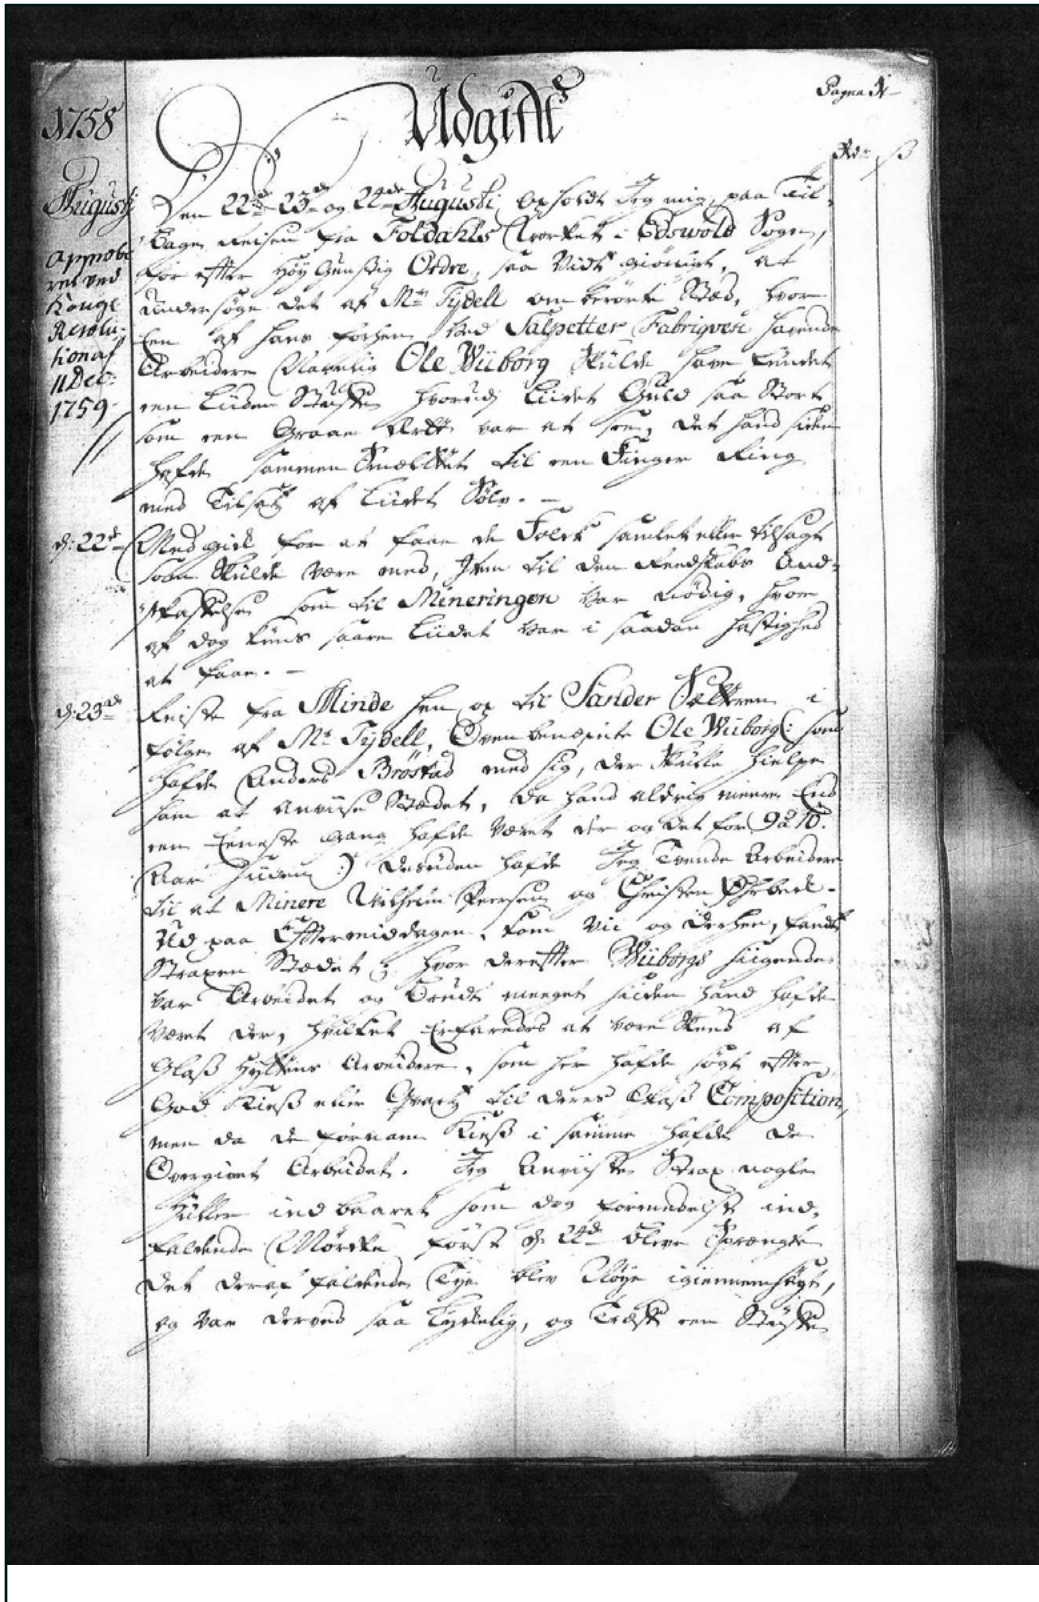 Pagina 1
Udgift
1758
Rdr ß
Augusti
Den 22de 23de og 24de Augusti opholdt Jeg mig, paa Til-
bage Reisen fra Foldahls Værket i Edswold Sogn,
for efter Høy Gunstig Ordre, saa vidt giørligt, at
undersøge det af Mr Tydell omberørte Stæd, hvor
Een af hans forhen ved Salpetter Fabriqven havende
Arbeidere Navnlig Ole Wiiborg skulde have fundet
een liiden Støkke hvorudj liidet Guld saa Stort
som een Graae Ært var at see, det hand siden
hafde sammen Smæltet til een Finger Ring
med Tilsatz af liidet Sølv. -
Approbe-
ret ved
Konge
Resolu-
tion af
11 Dec:
1759.
d: 22de
Medgik for at faae de Folck samlet eller tilsagt
som skulde være med, Item til den Reedskabs And-
skaffelse som til Mineringen var nödig, hvor
af dog kuns saare liidet var i saadan hastighed
at faae. -
d: 23de
Reiste fra Minde hen op til Sander Sætteren i
følge af Mr Tydell, Ovenbenæfnte Ole Wiiborg (: som
hafde Anders Bröstad med sig, der skulle hielpe
ham at anviise Stædet, da hand aldrig meere End
een Eeneste gang hafde været der og det for 9 a 10.
Aar siiden :) desuden hafde Jeg Tvende Arbeidere
til at Minere Wilhelm Peersen og Christen
Ud paa Eftermiddagen, kom Vii og derhen, fandt
Straxen Stædet; hvor derefter Wiiborgs siigende
var Arbeidet og Brudt meeget siiden hand hafde
været der, hvilket Erfaredes at være skeed af
Glass Hyttens Arbeidere, som her hafde søgt efter
God Kiess eller Qvartz til deres Glass Composition,
men da de fornam Kiess i samme hafde de
Overgivet Arbeidet. Jeg Anviiste Strax nogle
Huller indbaaret som dog formedelst ind-
faldende Mørcke først d: 24de bleve Sprængte
det deraf faldende Tye blev Nøye igiennemsøgt,
og var derved saa lydelig, og Træfte een Støkke